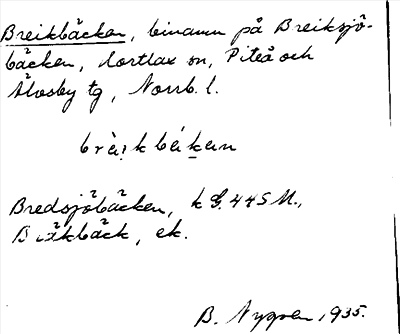 Breikbäcken, binamn på Breiksjö-
bäcken, Hortlax sn, Piteå och
Älvsby tg, Norrb. l.
Bredsjöbäcken, k bl. 445 M.,
Bräkbäck, ek.
B. Nygren, 1935.